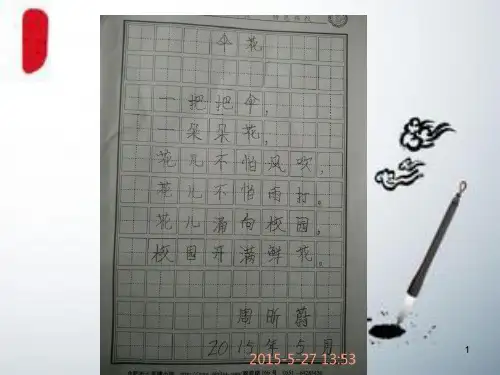 伞花
一把把伞，
一朵朵花，
花儿不怕风吹，
花儿不怕雨打。
花儿涌向校园，
校园开满鲜花。
周昕蔚
2015年5月
2015-5-27 13:53
1